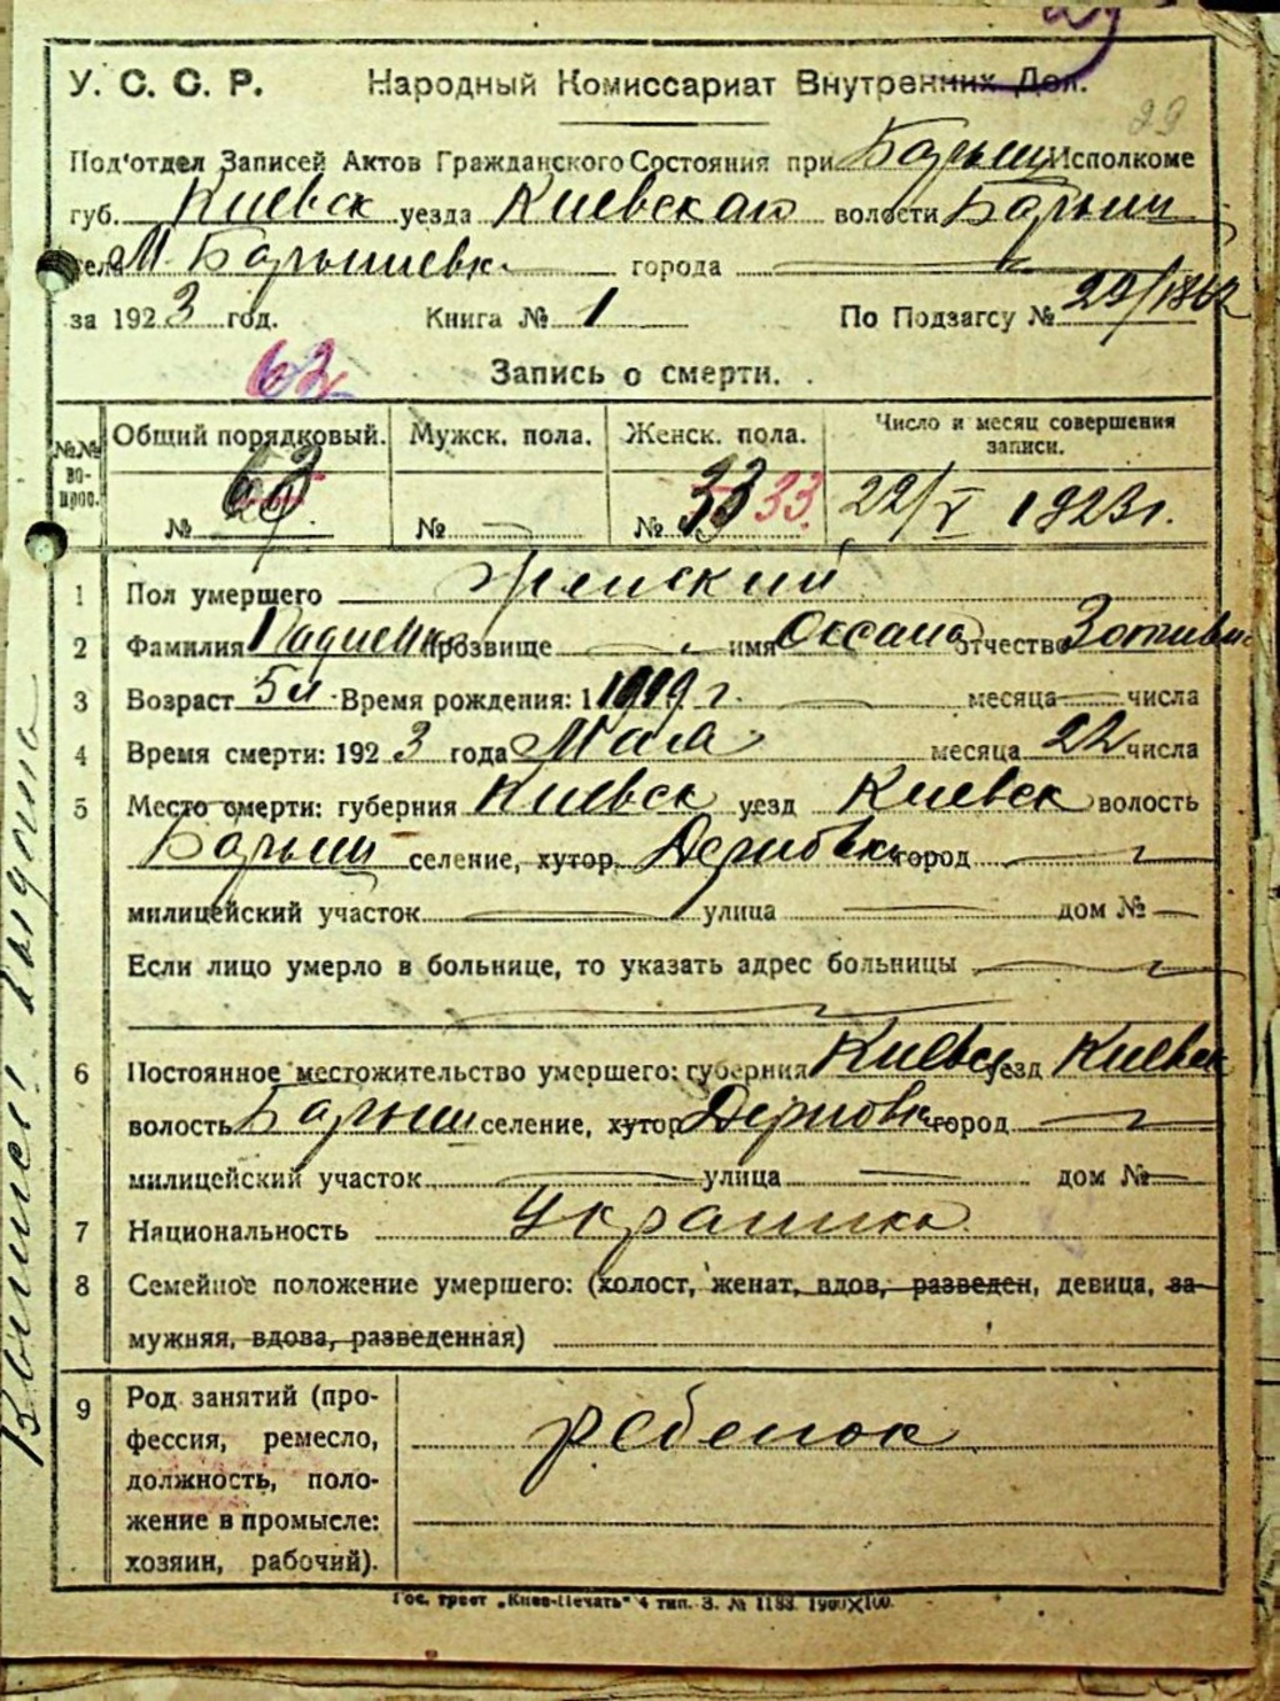 У. С. С. Р. Народный Комиссариат Внутренних Дел.
29
Под'отдел Записей Актов Гражданского Состояния при Барыш Исполкоме
губ. Киевск уезда Киевского волости Барыш
села М. Барышевк города
за 1923 год. Книга № 1 По Подзагсу № 29/1862
63
Запись о смерти.
№№ вопрос. Общий порядковый. Мужск. пола. Женск. пола. Число и месяц совершения записи.
№ 63 № № 33 33. 22/V 1923 г.
1 Пол умершего женский
2 Фамилия прозвище имя Оксана отчество
3 Возраст 5 л Время рождения: 1 1919 г. месяца числа
4 Время смерти: 1923 года Мая месяца 22 числа
5 Место смерти: губерния Киевск уезд Киевск волость
Барыш селение, хутор город
милицейский участок улица дом №
Если лицо умерло в больнице, то указать адрес больницы
6 Постоянное местожительство умершего: губерния Киевск уезд Киевск
волость Барыш селение, хутор город
милицейский участок улица дом №
7 Национальность Украинка
8 Семейное положение умершего: (холост, женат, вдов, разведен, девица, за-
мужняя, вдова, разведенная)
9 Род занятий (про- ребенок
фессия, ремесло,
должность, поло-
жение в промысле:
хозяин, рабочий).
Гос. трест „Киев-Печать“ 4 тип. З. № 1183. 1900X100.